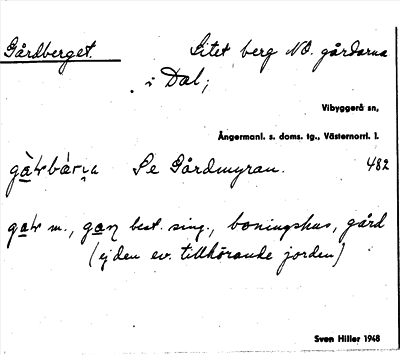 Gårdberget. Litet berg NO. gårdarna
i Dal;
Vibyggerå sn,
Ångermanl. s. doms. tg., Västernorrl. l.
Se Gårdmyran. 482
m., best. sing., boningshus, gård
(ej den ev. tillhörande jorden)
Sven Hiller 1948